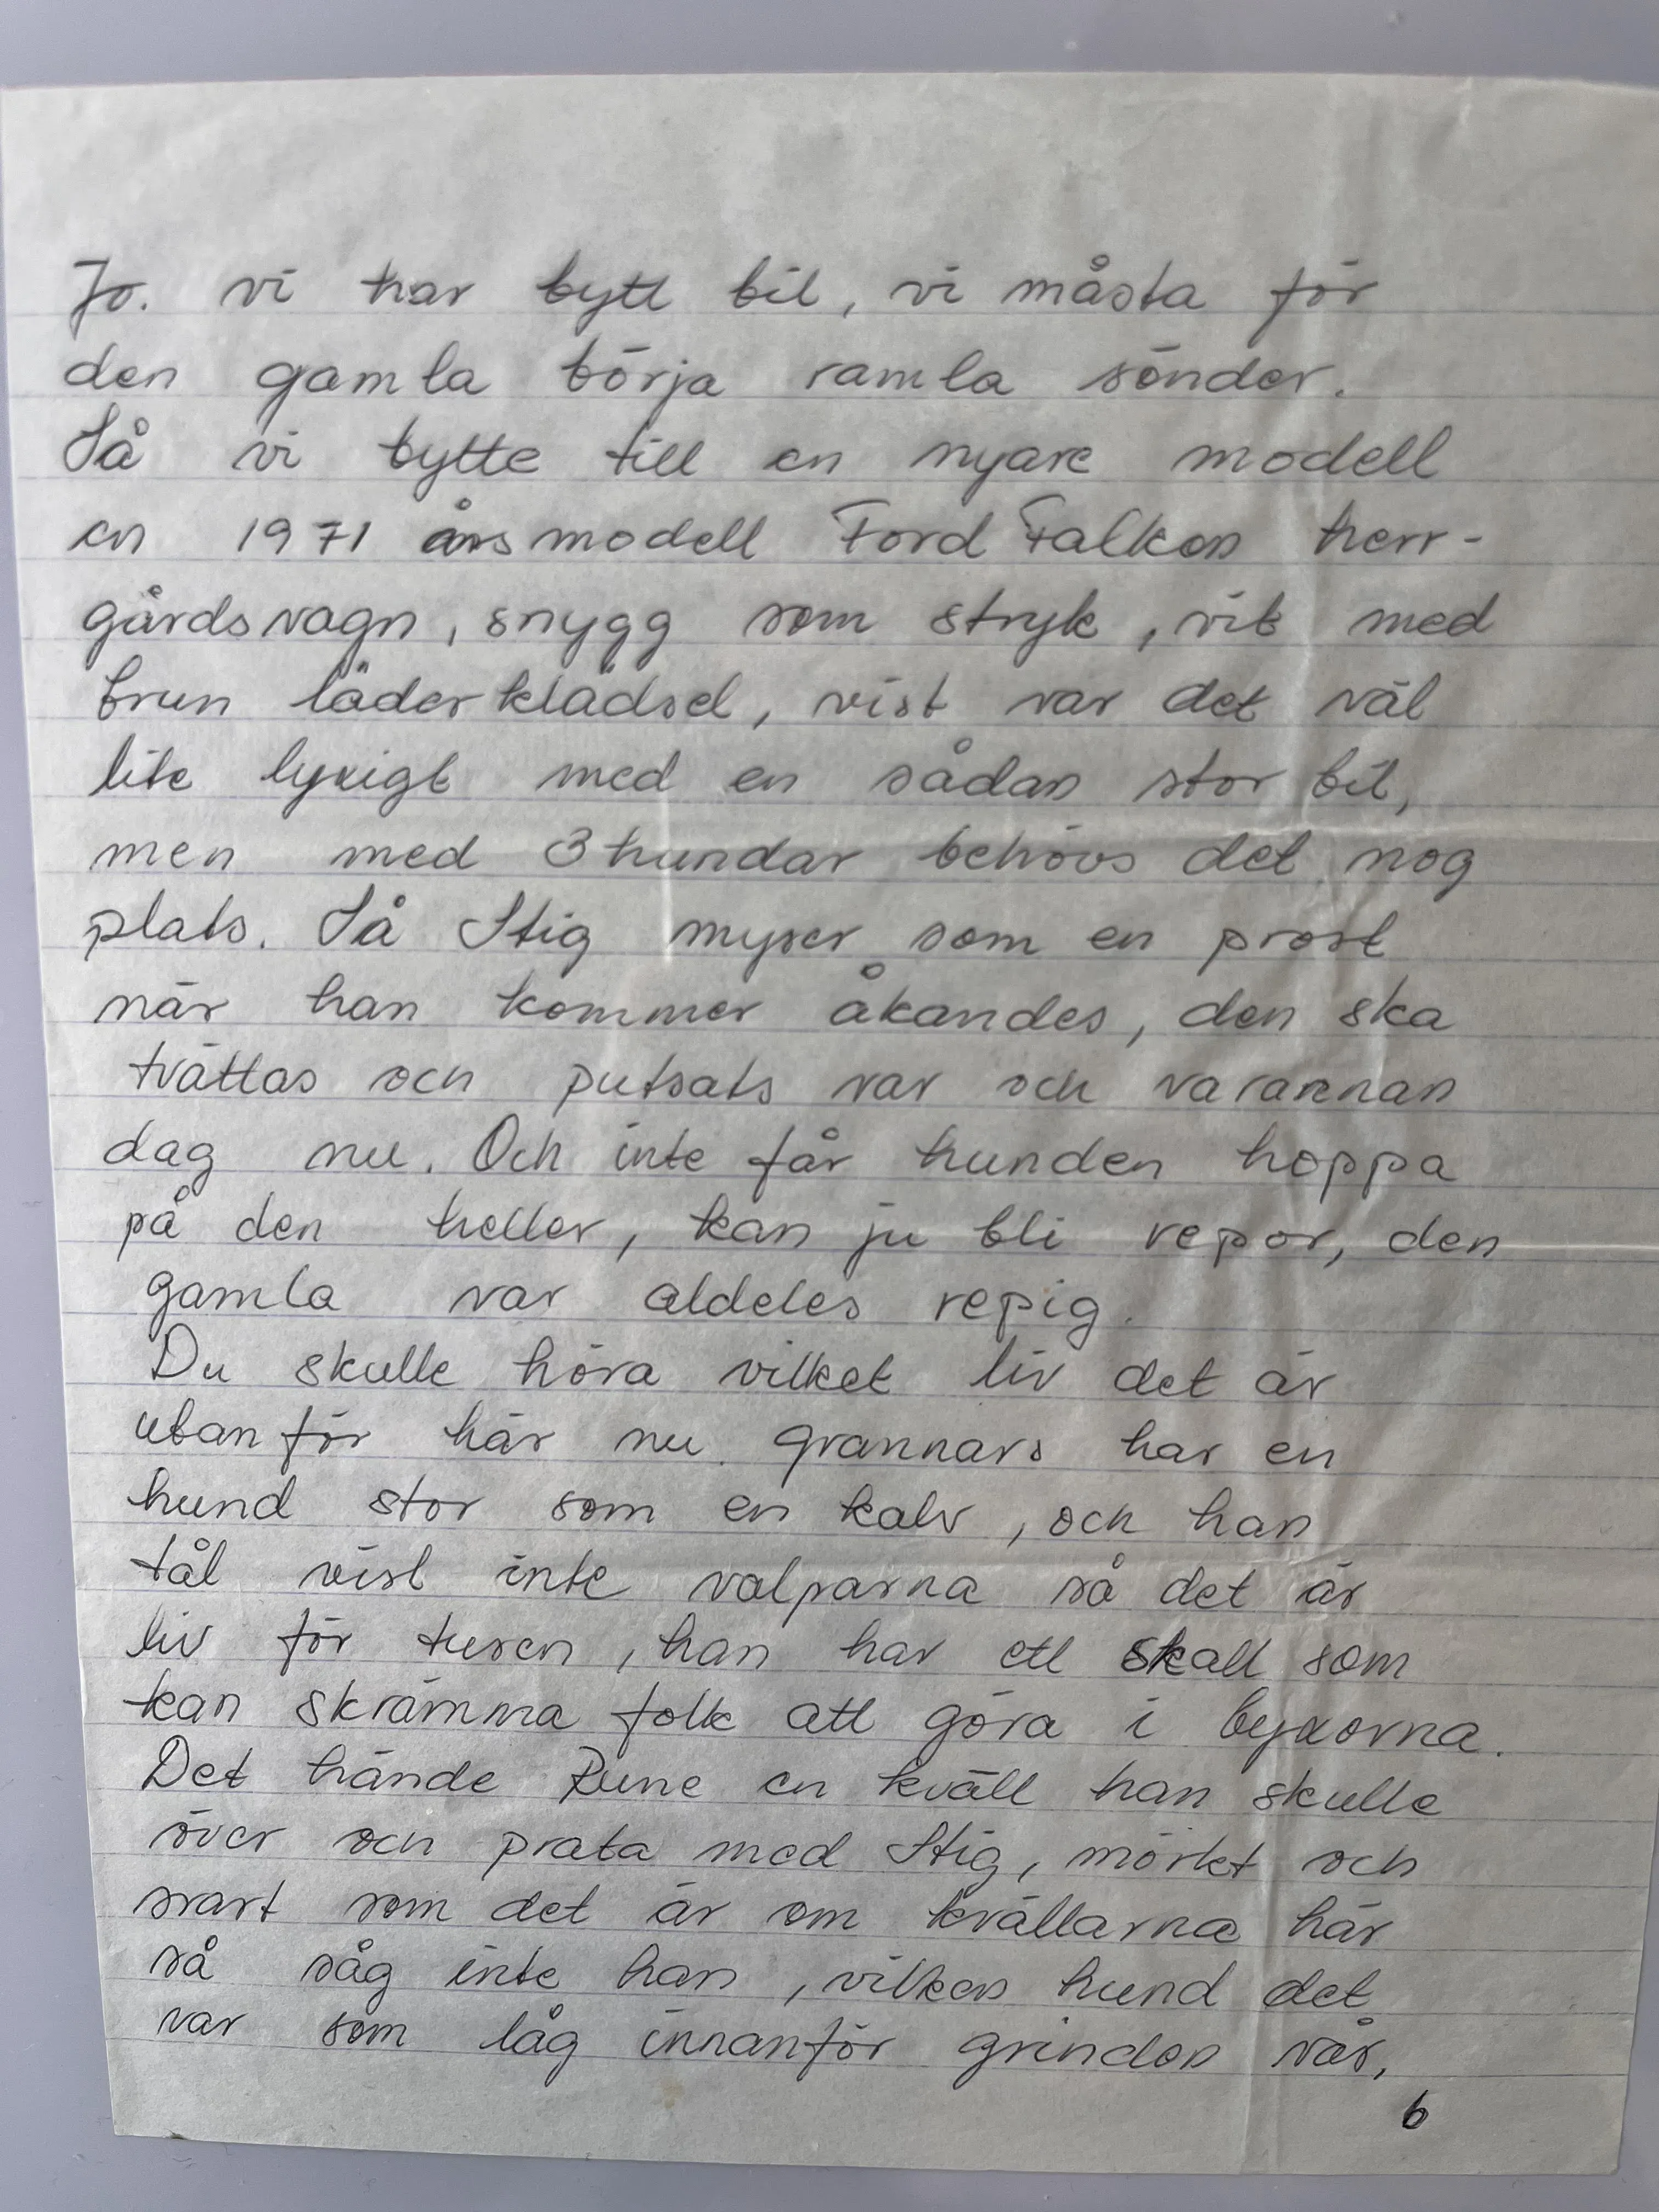 Jo. vi har bytt bil, vi måsta för
den gamla börja ramla sönder.
Så vi bytte till en nyare modell
en 1971 årsmodell Ford Falken herr-
gårdsvagn, snygg som stryk, vit med
brun läderklädsel, vist var det väl
lite lyxigt med en sådan stor bil,
men med 3 hundar behövs det nog
plats. Så Stig myser som en prost
när han kommer åkandes, den ska
tvättas och putsats var och varannan
dag nu. Och inte får hunden hoppa
på den heller, kan ju bli repor, den
gamla var aldeles repig.
Du skulle höra vilket liv det är
utanför här nu. grannars har en
hund stor som en kalv, och han
tål vist inte valparna så det är
liv för tusen, han har ett skall som
kan skrämma folk att göra i byxorna.
Det hände Rune en kväll han skulle
över och prata med Stig, mörkt och
svart som det är om kvällarna här
så såg inte han, vilken hund det
var som låg innanför grinden vår,
6